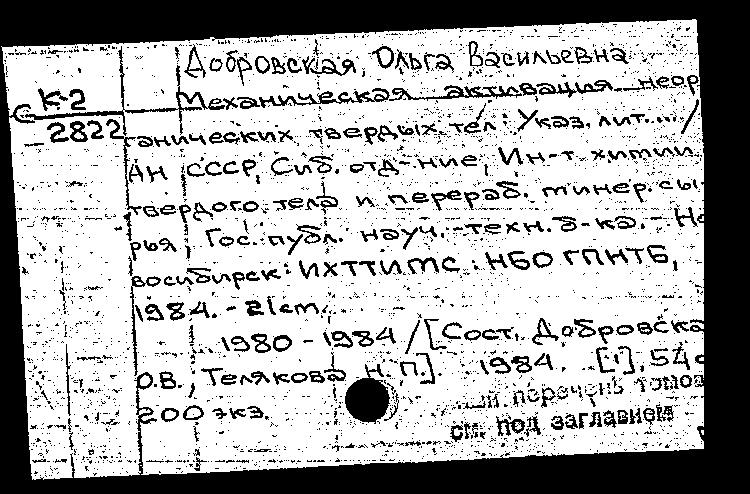 Добровская, Ольга Васильевна
К-2
Механическая активация неор
С
2822
ганических твердых тел: Указ. лит.... /
АН СССР, Сиб. отд-ние, Ин-т химии
твердого тела и перераб. минер. сы
рья, Гос. публ. науч.-техн. б-ка. - Но
восибирск: ИХТТИМС: НБО ГПНТБ,
1984. - 21 см.
1980 - 1984 / [Сост. Добровска
О.В., Телякова Н.П.]. 1984. [1], 54 с
200 экз.
перечень томов
см. под заглавием